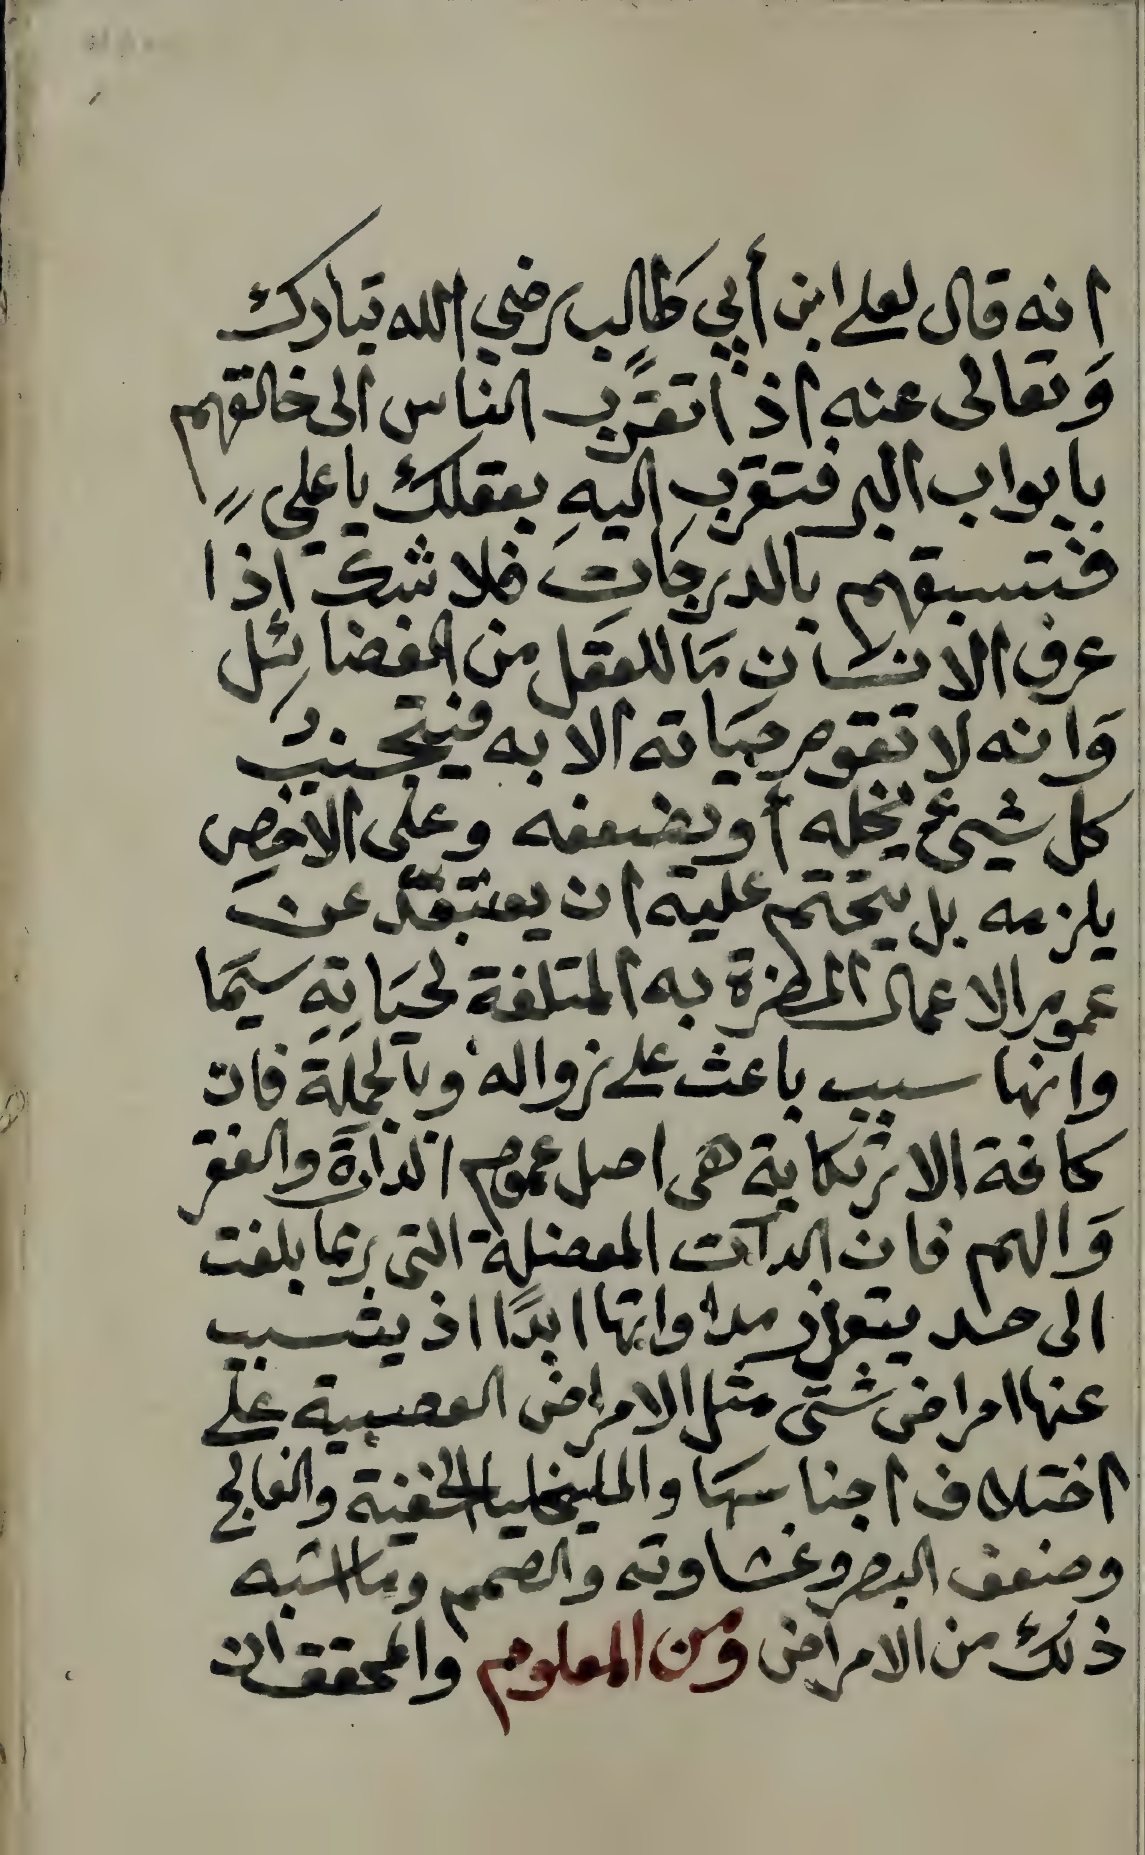 انه قال لعلي ابن أبي طالب رضي الله تبارك
وتعالى عنه اذا تقرب الناس الى خالقهم
بابواب البر فتقرب اليهِ بعقلك يا علي
فتسبقهم بالدرجات فلا شك اذا
عرف الانسان مَا للعقل من الفضائِل
وَانه لا تقوم حيَاته الا به فيتجنب
كل شيئ يخله أو يضعفه وعلى الاخص
يلزمه بل يتحتم عليه ان يعتقد عن
عموم الاعمال المضرة به المتلفة لحيَاتِهِ سيّمَا
وانها سبب باعث على زواله وبالجملة فان
كافة الارتكابة هى اصل عموم والفقر
وَالهم فان الدآت المعضلة التي ربما بلغت
الى حد يتعزز مداواتها ابدًا اذ يتسبب
عنها امراض شتى مثل الامراض العصبية على
اختلاف اجناسهَا والمليخليا الخفية والفالج
وضعف البصر وغشاوته والصمم وما اشبه
ذلك من الامراض ومن المعلوم والمحقق ان